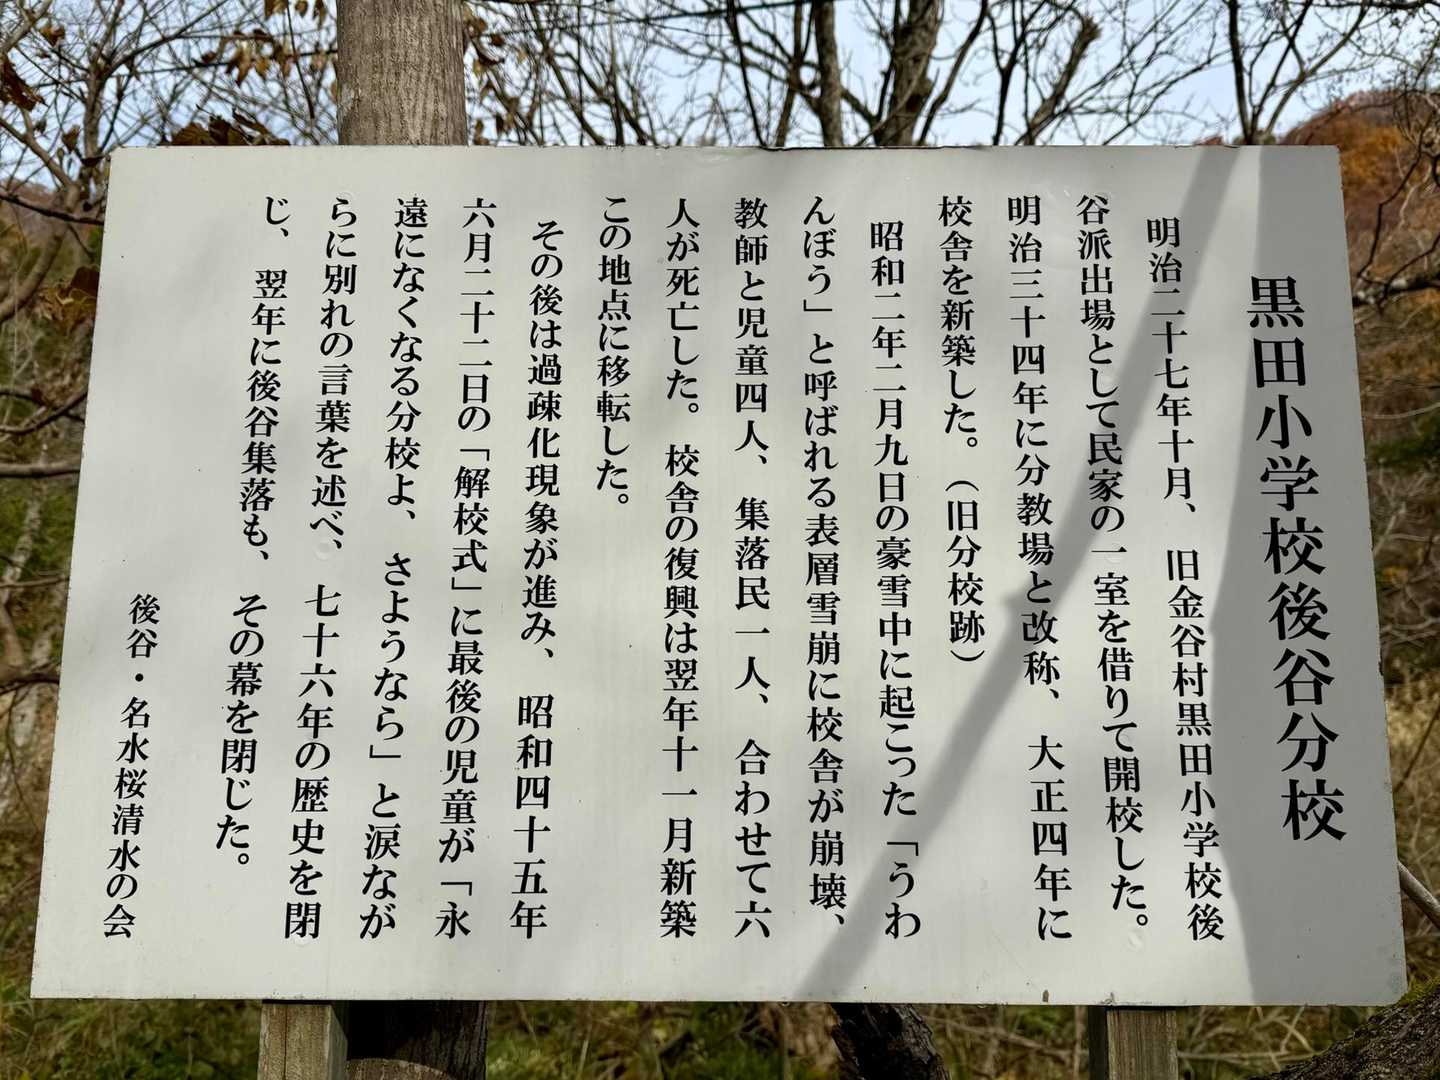 黒田小学校後谷分校
明治二十七年十月、旧金谷村黒田小学校後
谷派出場として民家の一室を借りて開校した。
明治三十四年に分教場と改称、大正四年に
校舎を新築した。（旧分校跡）
昭和二年二月九日の豪雪中に起こった「うわ
んぼう」と呼ばれる表層雪崩に校舎が崩壊、
教師と児童四人、集落民一人、合わせて六
人が死亡した。校舎の復興は翌年十一月新築
この地点に移転した。
その後は過疎化現象が進み、昭和四十五年
六月二十二日の「解校式」に最後の児童が「永
遠になくなる分校よ、さようなら」と涙なが
らに別れの言葉を述べ、七十六年の歴史を閉
じ、翌年に後谷集落も、その幕を閉じた。
後谷・名水桜清水の会